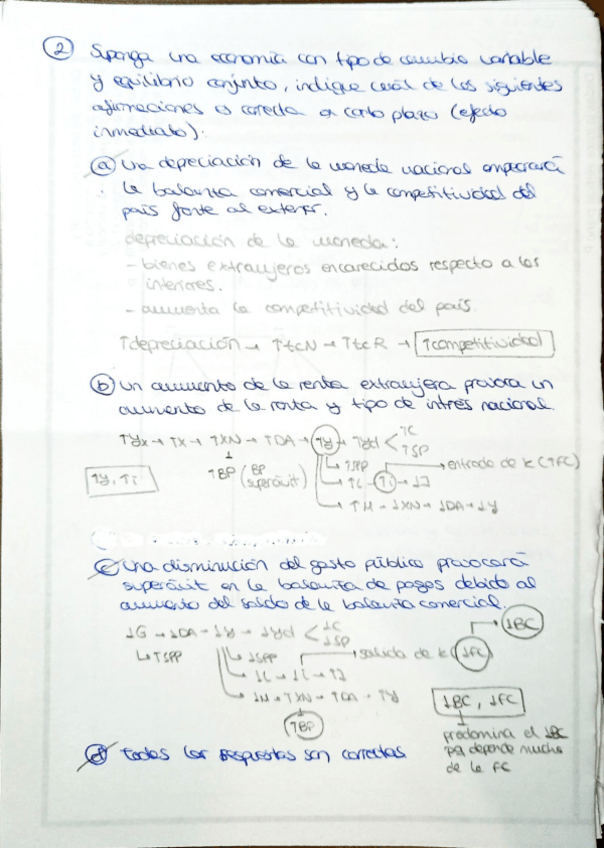 ② Suponga una economía con tipo de cambio variable
y equilibrio conjunto, indique cuál de las siguientes
afirmaciones es correcta a corto plazo (efecto
inmediato):
ⓐ Una depreciación de la moneda nacional empeorará
la balanza comercial y la competitividad del
país frente al exterior.
depreciación de la moneda:
- bienes extranjeros encarecidos respecto a los
interiores.
- aumenta la competitividad del país.
↑depreciación → ↑tcN → ↑tcR → ↑competitividad
ⓑ Un aumento de la renta extranjera provoca un
aumento de la renta y tipo de interés nacional.
↑Yx → ↑X → ↑XN → ↑DA → ↑Y → ↑Yd < ↑C
↑SP
↑BP (BP superávit)
↑SPP
↑L → ↑i → ↓I
entrada de k (↑FC)
↑M → ↓XN → ↓DA → ↓Y
↑Y, ↑i
ⓒ Una disminución del gasto público provocará
superávit en la balanza de pagos debido al
aumento del saldo de la balanza comercial.
↓G → ↓DA → ↓Y → ↓Yd < ↓C
↓SP
↳ ↑SPP
↓SPP
↓L → ↓i → ↑I
salida de k (↓FC) → ↓BC
↓M → ↑XN → ↑DA → ↑Y
↑BP
↓BC, ↓FC
predomina el ↓BC
depende mucho
de la FC
ⓓ Todas las respuestas son correctas